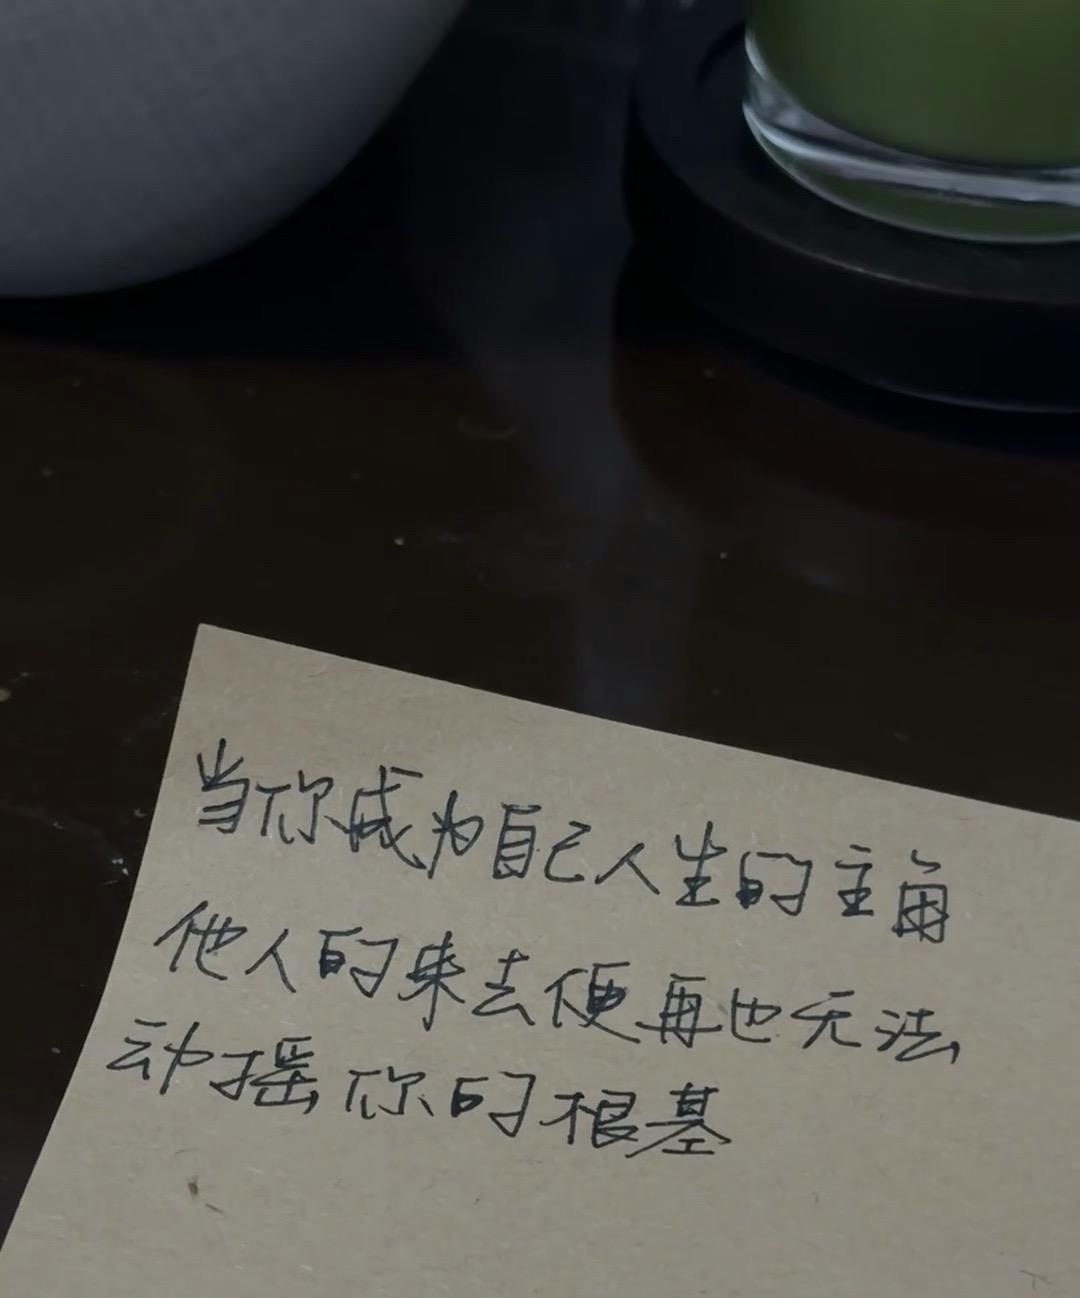 当你成为自己人生的主角
他人的来去便再也无法
动摇你的根基